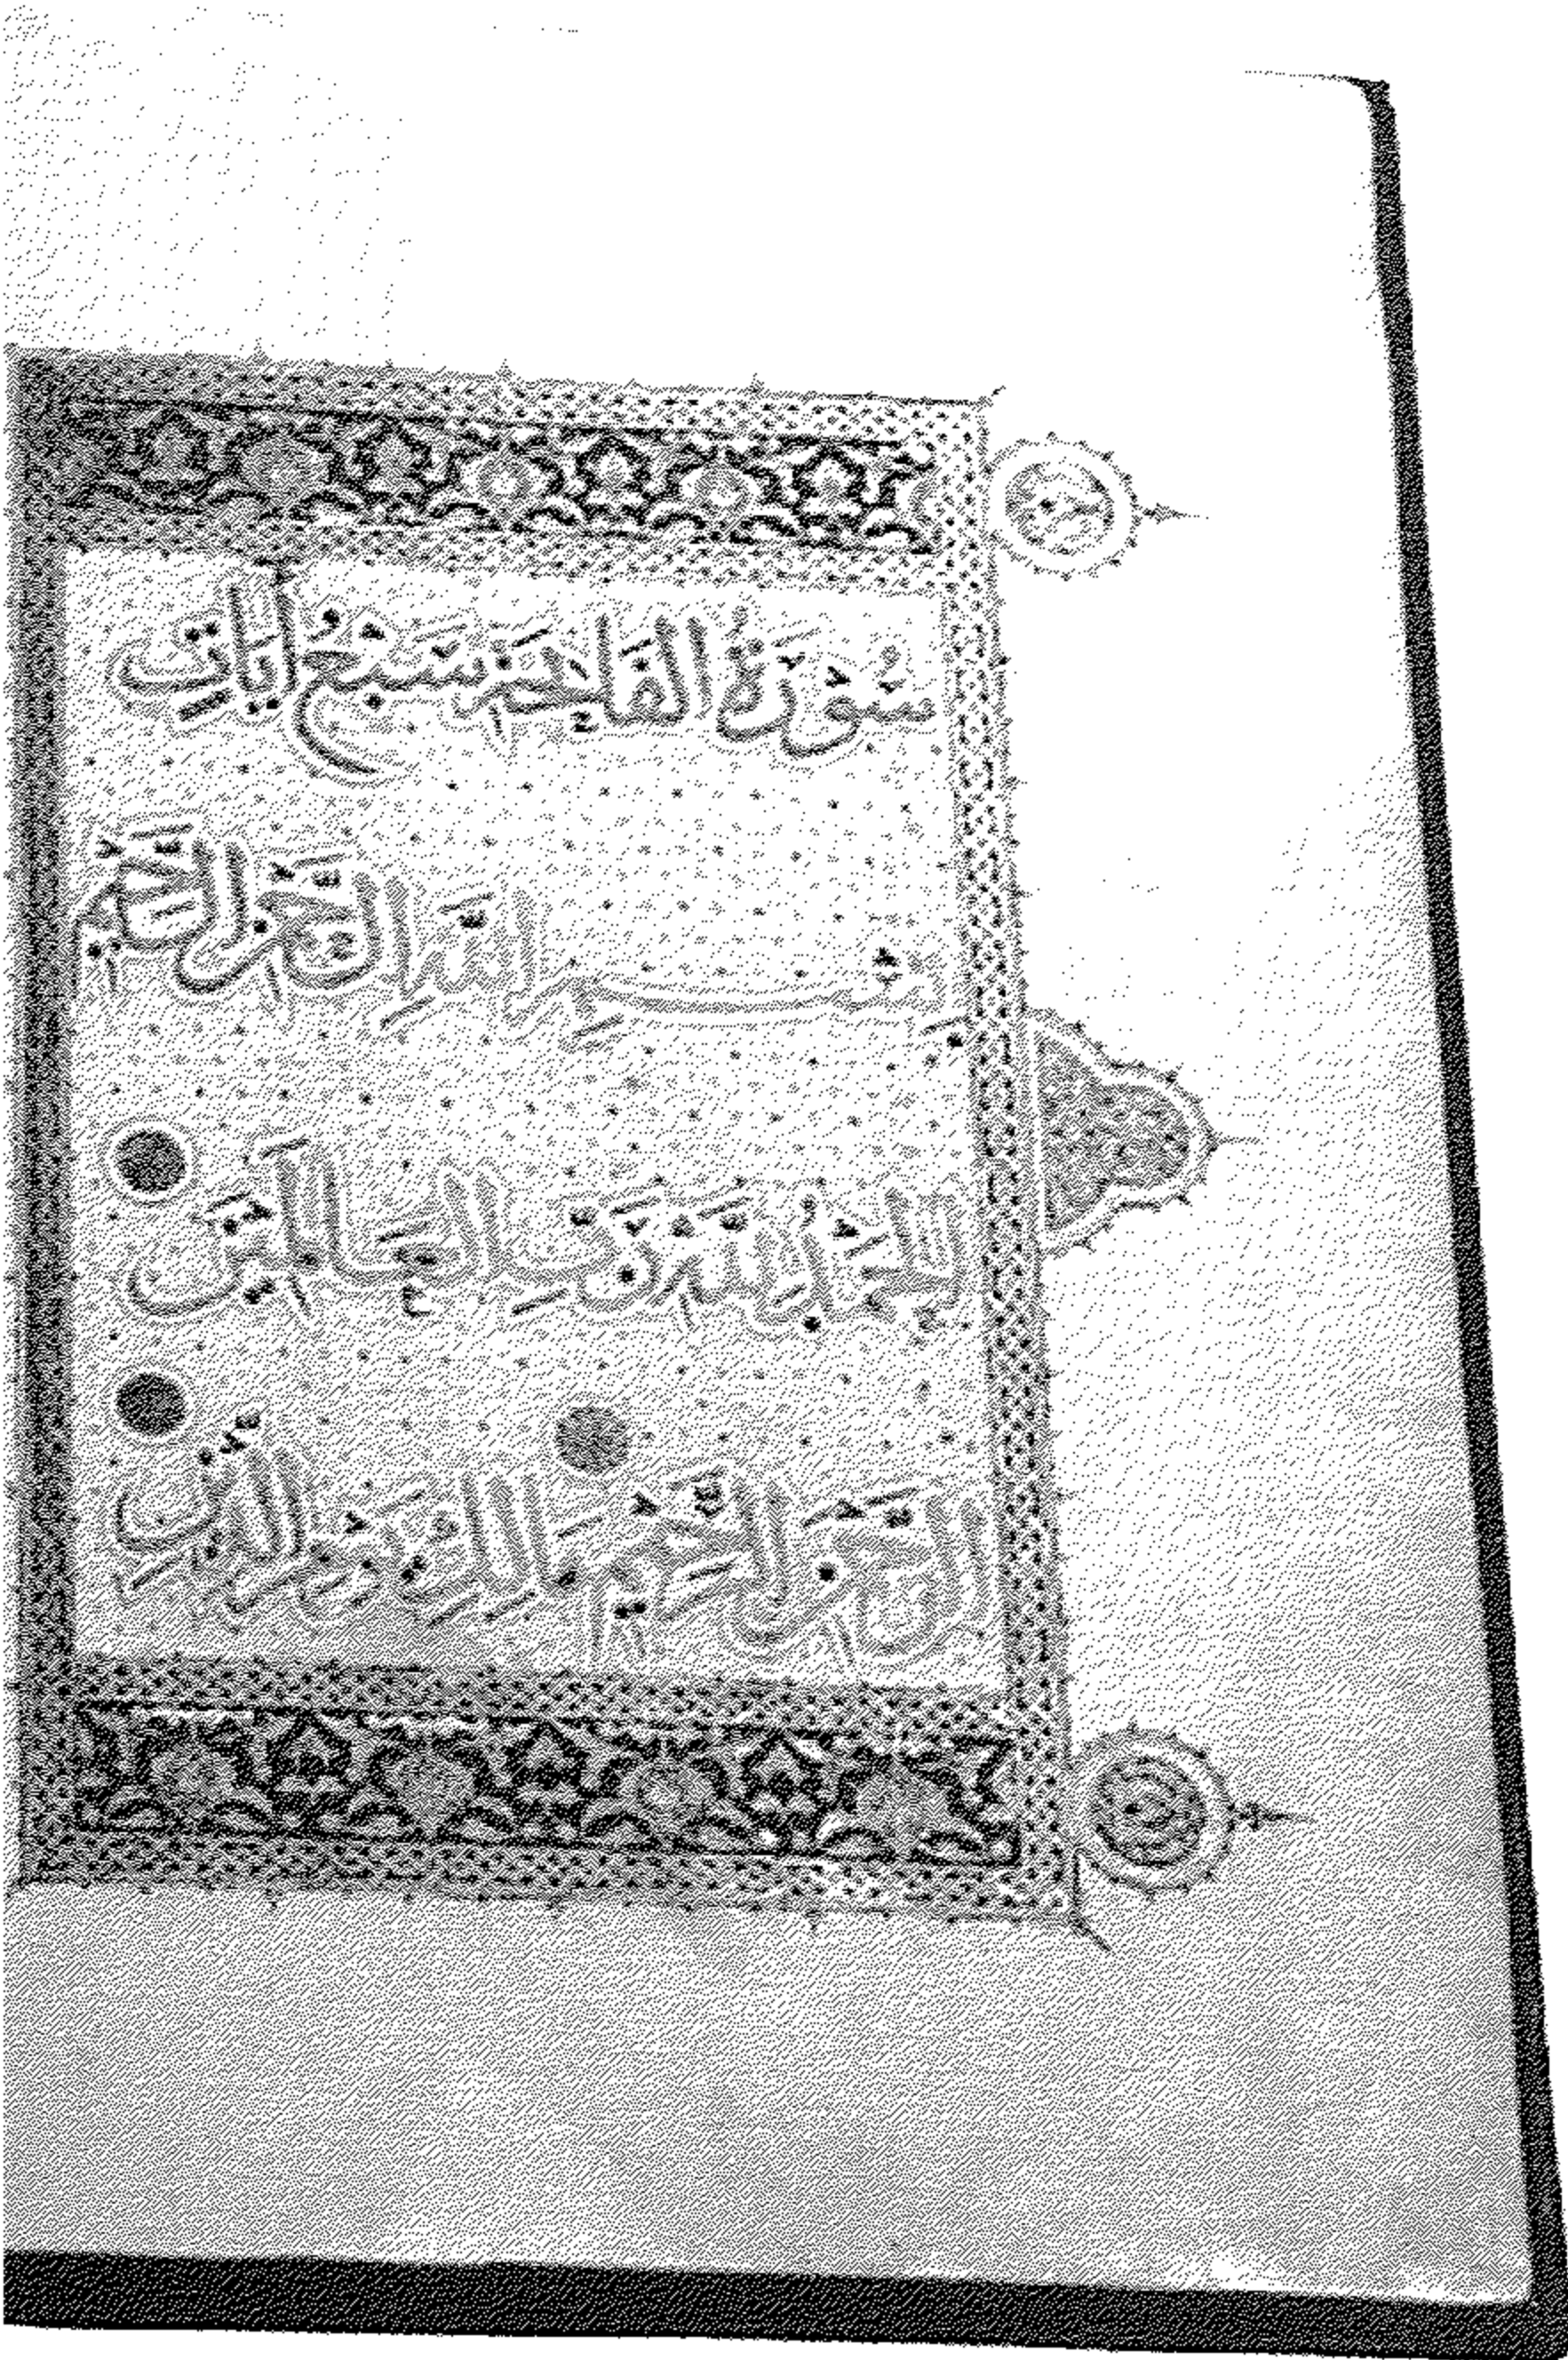 سُورَةُ الفَاتِحَةِ سَبْعُ اٰيَاتٍ
بِسْمِ اللَّهِ الرَّحْمٰنِ الرَّحِيمِ
اَلْحَمْدُ لِلَّهِ رَبِّ الْعَالَمِينَ
الرَّحْمٰنِ الرَّحِيمِ مَالِكِ يَوْمِ الدِّينِ